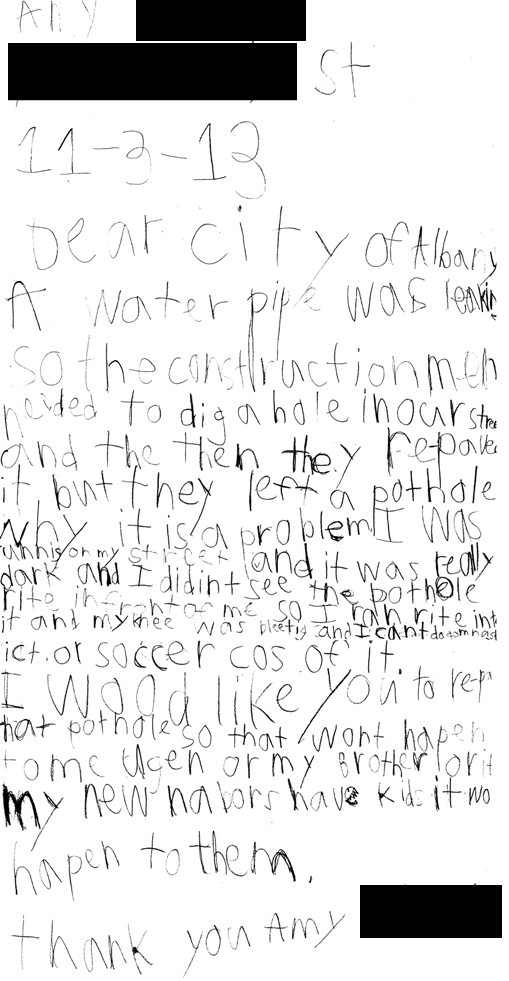 Amy
st
11-3-13
Dear city of Albany
A water pipe was leakin
so the construction men
neided to dig a hole in our stree
and the then they repave
it but they left a pothole
why it is a problem I was
runnig on my street and it was really
dark and I didint see the pothole
rite in front of me so I ran rite int
it and my knee was bleetig and I cant do gomnast
ict. or soccer cos of it
I wood like you to repa
hat pothole so that wont hapen
to me agen or my Brother or if
my new nabors have kids it wo
hapen to them.
thank you Amy